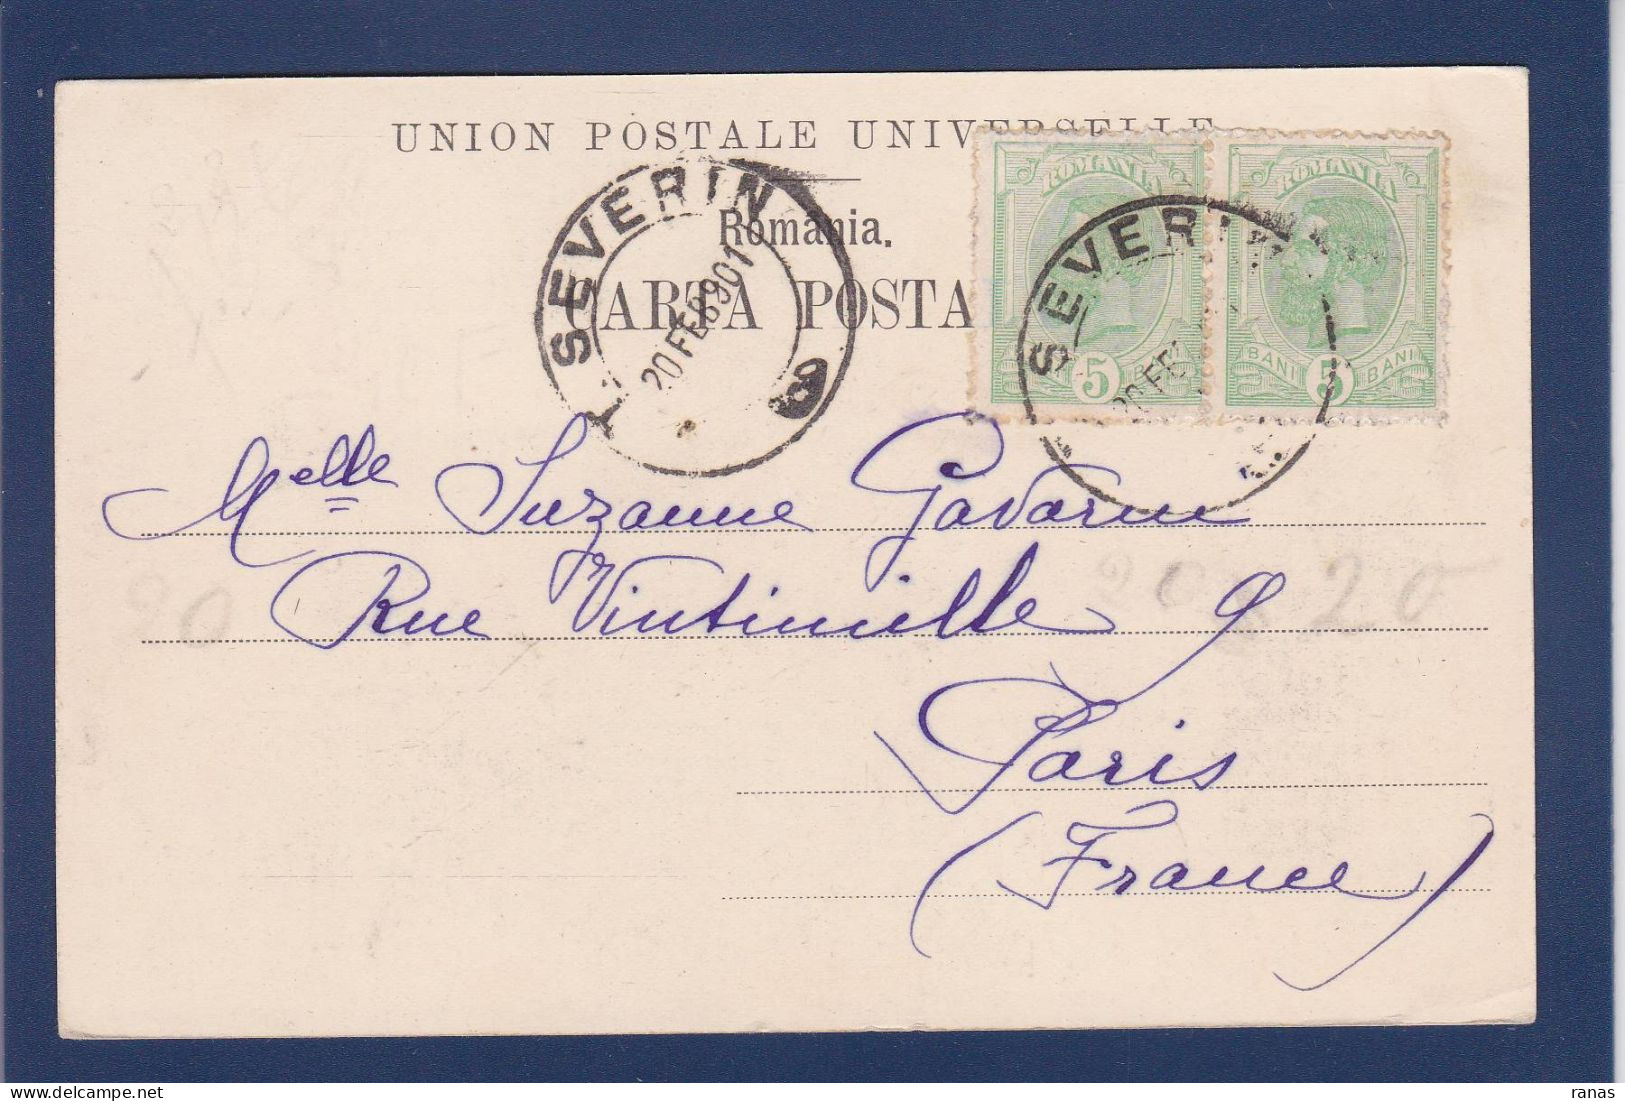 UNION POSTALE UNIVERSELLE
România.
CARTA POSTA
T. SEVERIN
20 FEB 901
ROMANIA
BANI 5 BANI
ROMANIA
BANI 5 BANI
SEVERIN
20 FE
Melle Suzanne Gavarni
Rue Vintimille 9
Paris
(France)
20
20
20
ranas